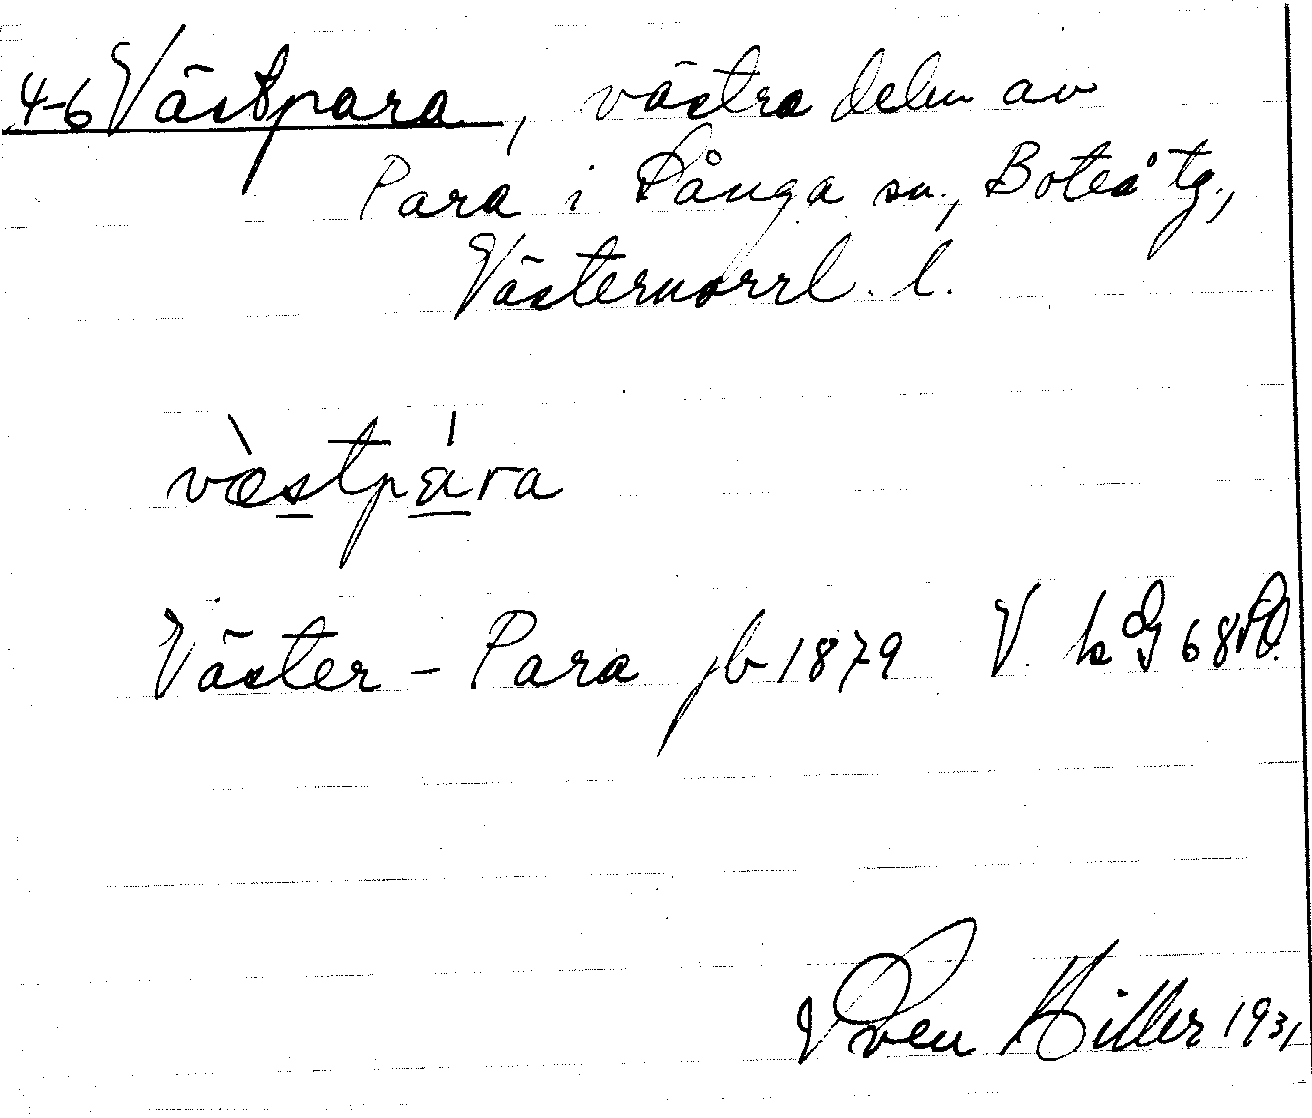 4-6 Västpara, västra delen av
Para i Sånga sn, Boteå tg.,
Västernorrl. l.
væ̀stpára
Väster-Para jb 1879 V.
Sven Hiller 1931